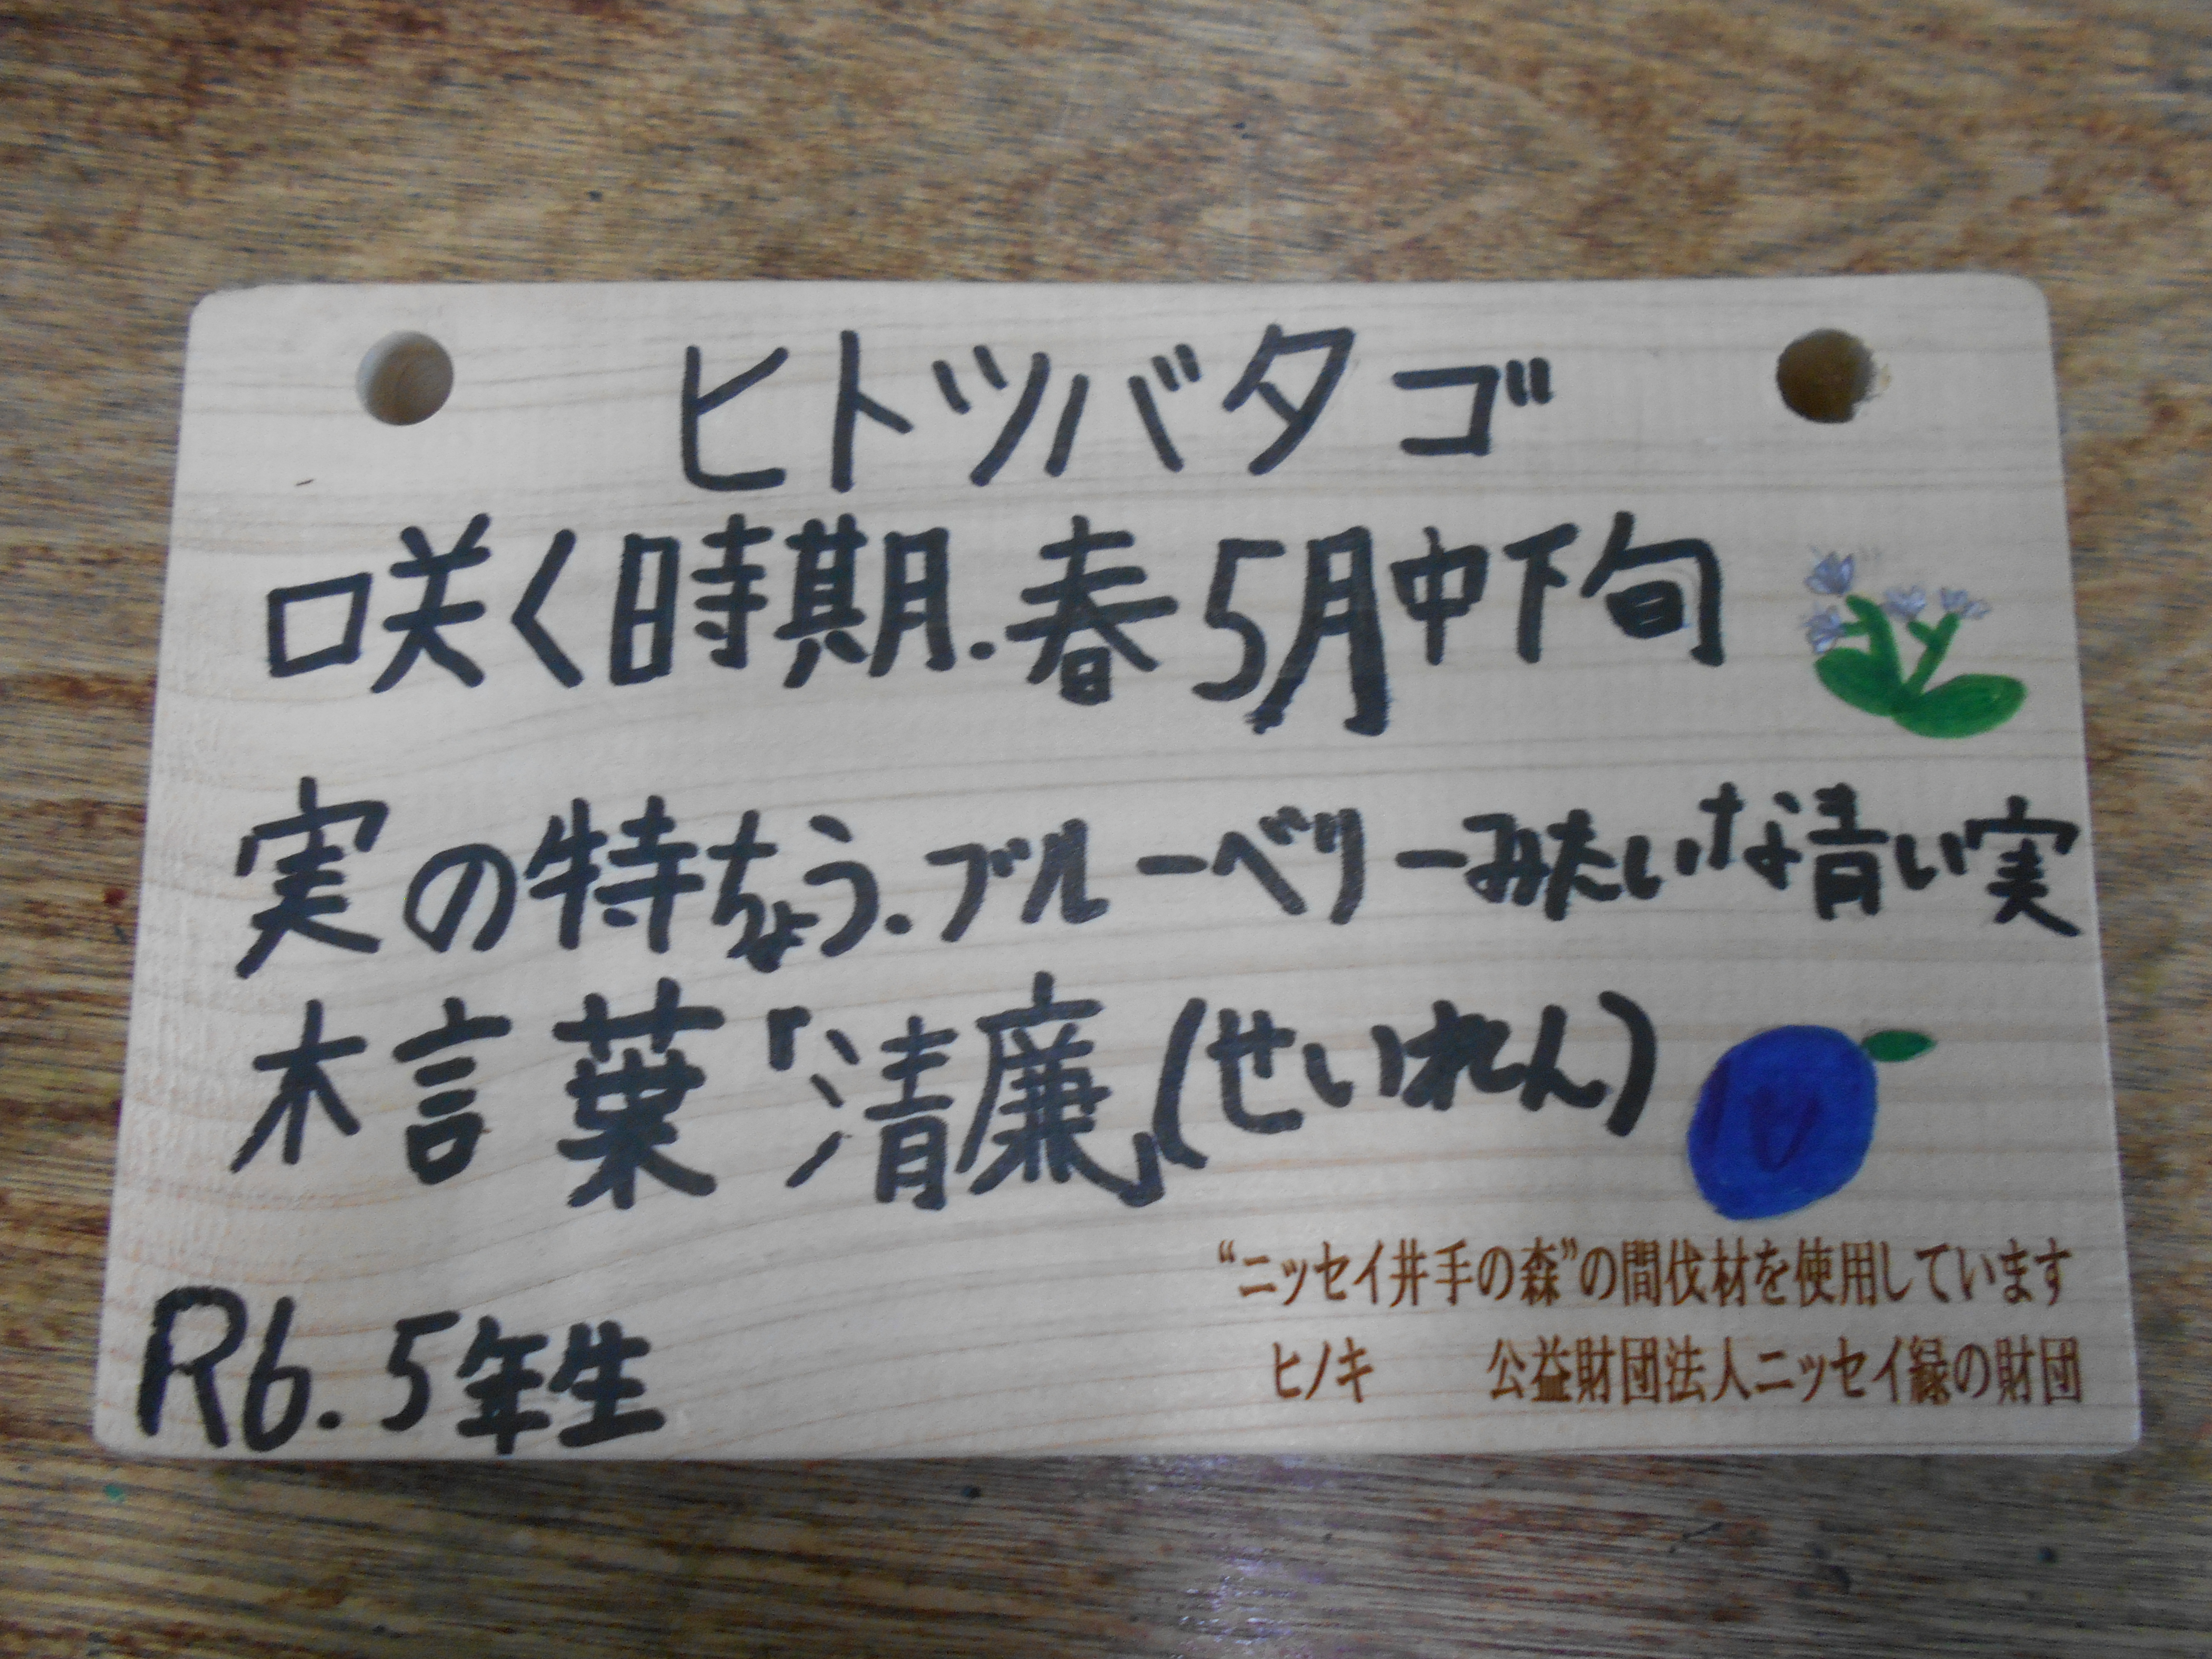 ヒトツバタゴ
咲く時期.春5月中下旬
実の特ちょう.ブルーベリーみたいな青い実
木言葉「清廉」(せいれん)
R6.5年生
“ニッセイ井手の森”の間伐材を使用しています
ヒノキ 公益財団法人ニッセイ緑の財団